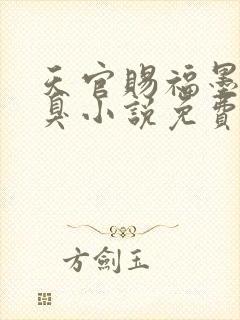 天官賜福墨
臭小説免費
方劍玉